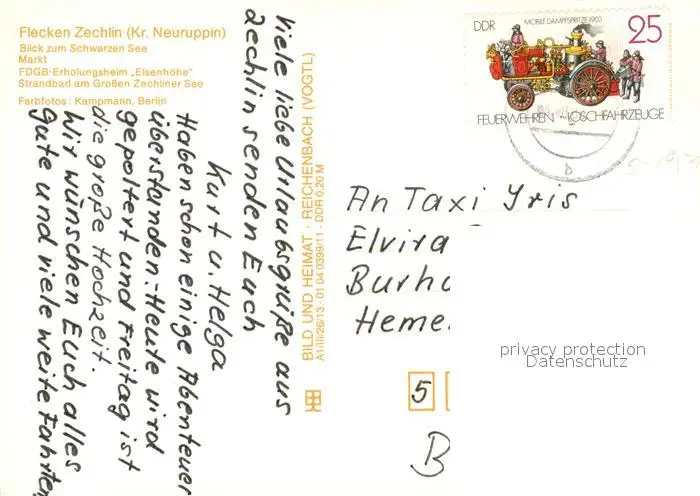 Flecken Zechlin (Kr. Neuruppin)
Blick zum Schwarzen See
Markt
FDGB-Erholungsheim „Elsenhöhe"
Strandbad am Großen Zechliner See
Farbfotos: Kampmann, Berlin
Viele liebe Urlaubsgrüße aus
Zechlin senden Euch
Kurt u. Helga
Haben schon einige Abenteuer
überstanden. Heute wird
gepoltert und Freitag ist
die große Hochzeit.
Wir wünschen Euch alles
Gute und viele weite Fahrten
BILD UND HEIMAT · REICHENBACH (VOGTL)
A1/III/26/13 · 01 04 0399/11 · DDR 0,20 M
DDR
MOBILE DAMPFSPRITZE 1903
25
FEUERWEHREN - LÖSCHFAHRZEUGE
An Taxi Iris
Elvira
Burh
Heme
5
B
privacy protection
Datenschutz